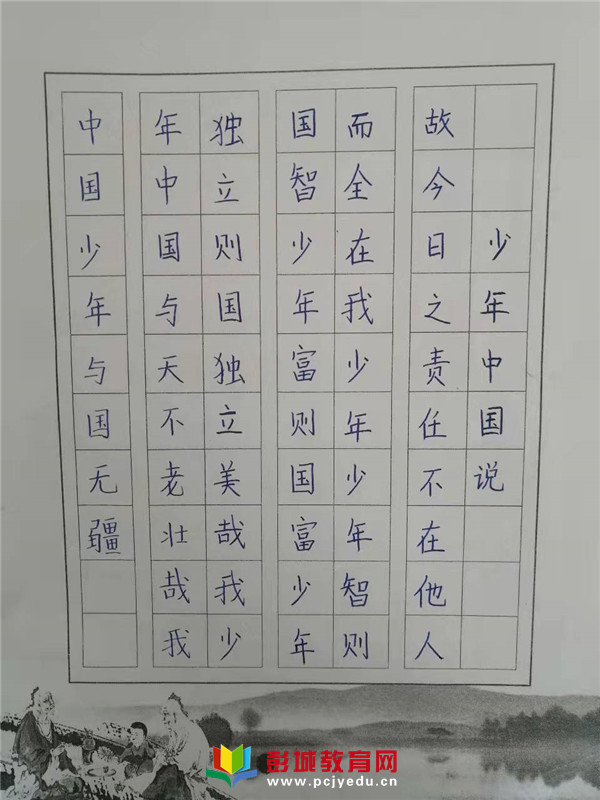 少年中国说
故今日之责任不在他人
而全在我少年少年智则
国智少年富则国富少年
独立则国独立美哉我少
年中国与天不老壮哉我
中国少年与国无疆
彭城教育网
www.pcjyedu.cn